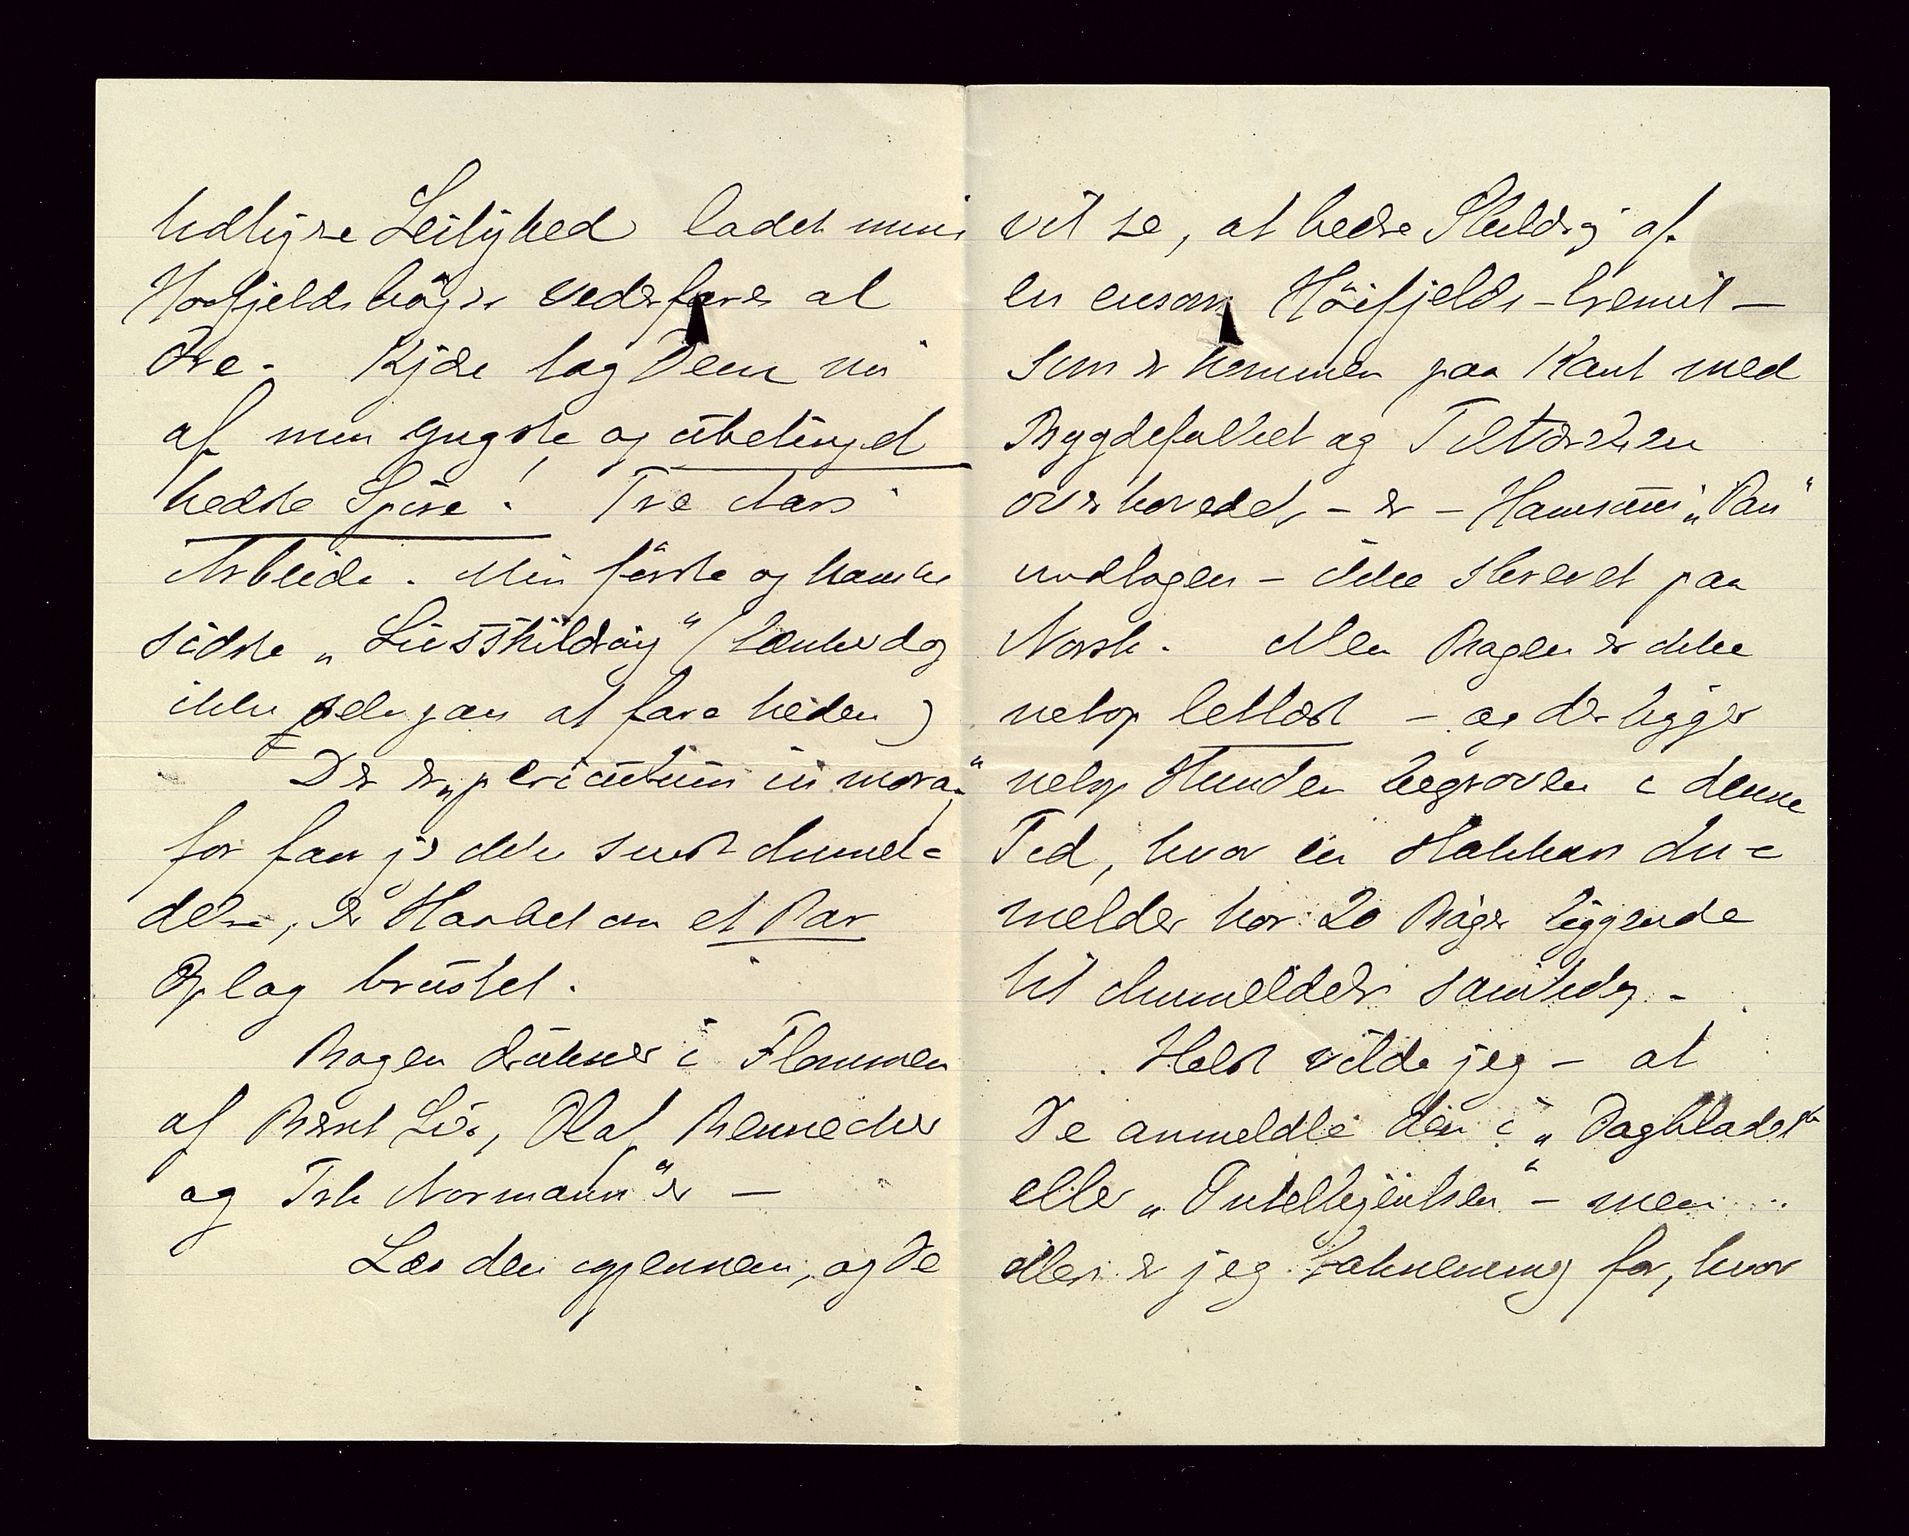 tidligere Leilighed ladet mine
Høifjeldsbøger vederfares al
Ære. Kjære tag Dem nu
af min yngste og ubetinget
bedste Spire! Tre Aars
Arbeide. Min første og kanske
sidste „Livsskildring“ (tænker dog
ikke selv paa at fare heden)
Der er „periculum in mora“
for faar jeg ikke snart Anmel-
delse, er Haabet om et Par
Oplag brustet.
Bogen drukner i Flommen
af Bernt Lie, Olaf Benneche
og Tryk Normann'er —
Læs den igjennem, og De
vil se, at bedre Skildring af
en ensom Høifjelds-Eremit —
som er kommen paa Kant med
Bygdefolket og Tilværelsen
overhovedet, – er – Hamsuns „Pan“
undtagen – ikke skrevet paa
Norsk. Men Bogen er ikke
netop letlæst – og der ligger
netop Hunden begraven i denne
Tid, hvor en Stakkars An-
melder har 20 Bøger liggende
til Anmeldelse samtidig –
Helst vilde jeg – at
De anmeldte den i „Dagbladet“
eller „Intelligentsen“ – men
ellers er jeg taknemmelig for, hvor